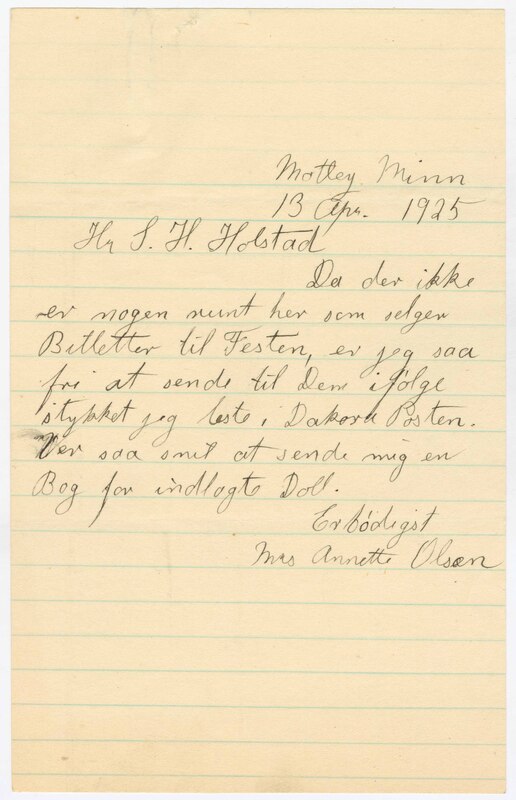 Motley Minn
13 Apr. 1925
Hr S. H. Holstad
Da der ikke
er nogen runt her som selger
Billetter til Festen, er jeg saa
fri at sende til Dem ifølge
stykket jeg leste i Decorah Posten.
Ver saa snil at sende mig en
Bog for indlagte Doll.
Erbödigst
Mrs Annette Olsen